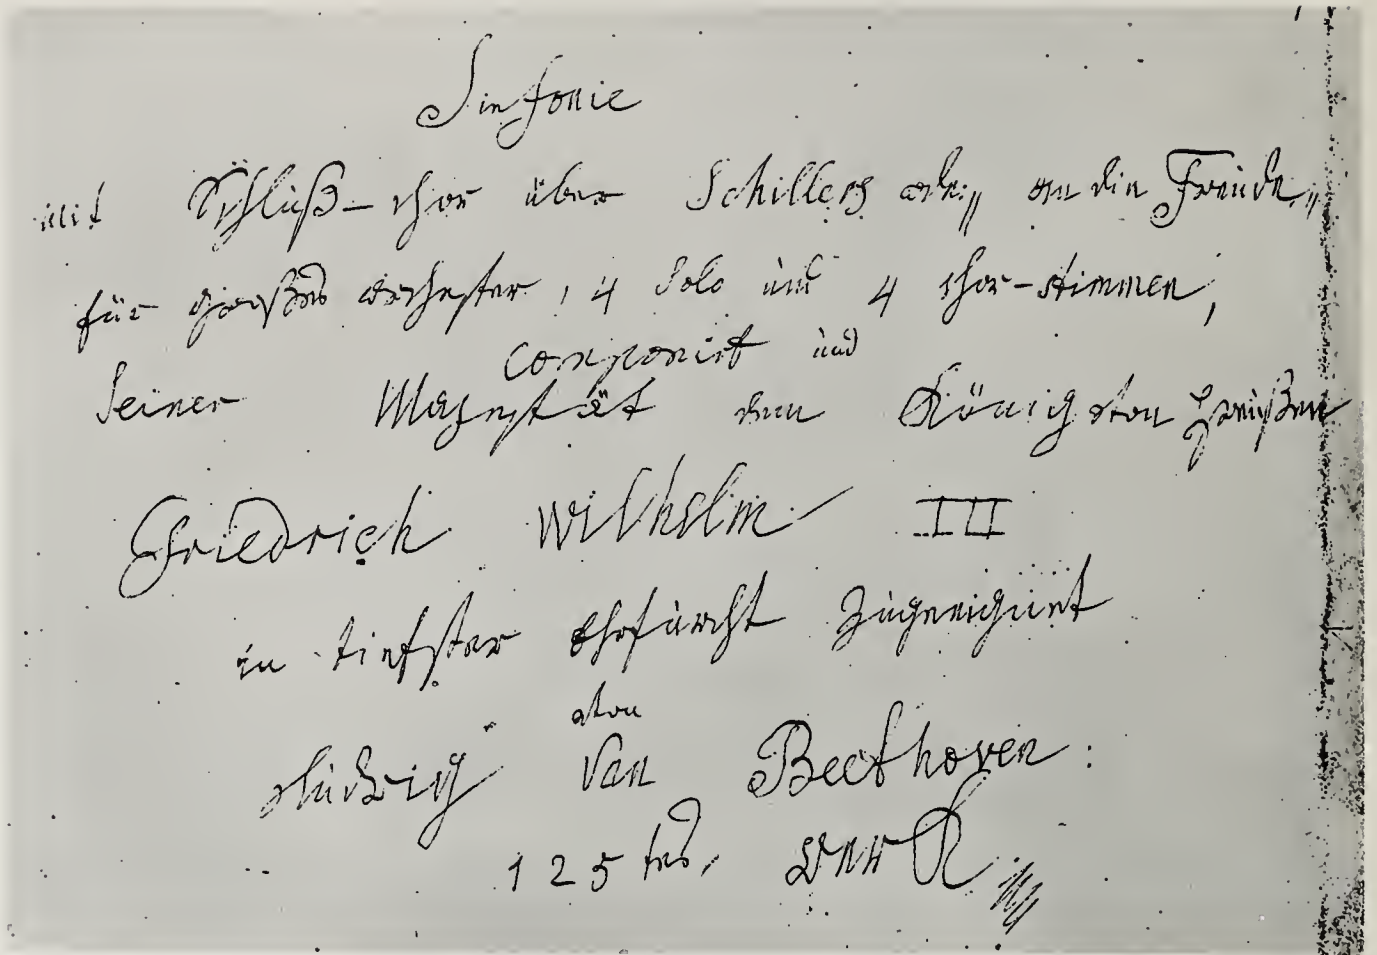 Sinfonie
mit Schluß-chor über Schillers ode: „ an die Freude „
für großes orchester, 4 Solo und 4 chor-stimmen,
componirt und
Seiner Majestät dem König von Preußen
Friedrich Wilhelm III
in tiefster Ehrfurcht zugeeignet
von
Ludwig van Beethoven:
125tes Werk